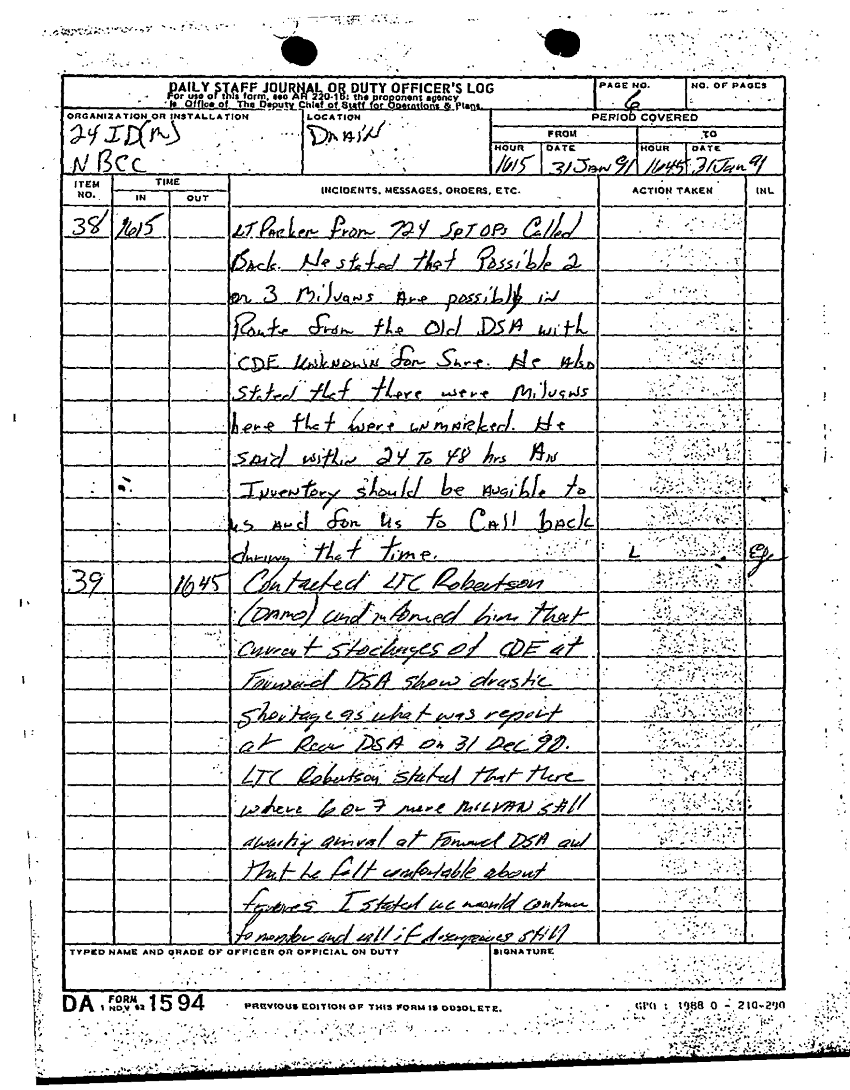 DAILY STAFF JOURNAL OR DUTY OFFICER'S LOG
For use of this form, see AR 220-15; the proponent agency
is Office of The Deputy Chief of Staff for Operations & Plans.
PAGE NO.
6
NO. OF PAGES
ORGANIZATION OR INSTALLATION
24 ID(M)
NBCC
LOCATION
PERIOD COVERED
FROM
TO
HOUR
DATE
HOUR
DATE
1615
31 JAN 91
1645
31 Jan 91
ITEM NO.
TIME
IN
OUT
INCIDENTS, MESSAGES, ORDERS, ETC.
ACTION TAKEN
INL
38 1615 LT Parker from 724 SPT OPs Called
Back. He stated that Possible 2
or 3 Milvans Are possibly in
Route from the Old DSA with
CDE UNKNOWN for Sure. He Also
stated that there were Milvans
here that were unmarked. He
said within 24 To 48 hrs An
Inventory should be Avaible to
us and for us to CAll back
during that time. L
39 1645 Contacted LTC Robertson
(DAMO) and informed him that
current stockages of CDE at
Forward DSA show drastic
shortage as what was report
at Rear DSA on 31 Dec 90.
LTC Robertson stated that there
where 6 or 7 more MILVAN still
awaiting arrival at Forward DSA and
that he felt comfortable about
figures. I stated we would continue
to monitor and call if still
TYPED NAME AND GRADE OF OFFICER OR OFFICIAL ON DUTY
SIGNATURE
DA FORM 1 NOV 62 1594
PREVIOUS EDITION OF THIS FORM IS OBSOLETE.
GPO : 1988 O - 210-290